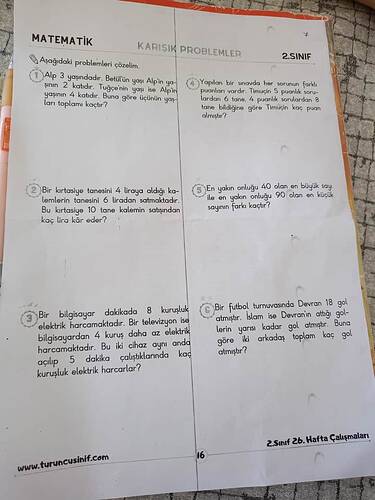 MATEMATİK
KARIŞIK PROBLEMLER
2.SINIF
Aşağıdaki problemleri çözelim.
1 Alp 3 yaşındadır. Betül'ün yaşı Alp'in ya-
şının 2 katıdır. Tuğçe'nin yaşı ise Alp'in
yaşının 4 katıdır. Buna göre üçünün yaş-
ları toplamı kaçtır?
2 Bir kırtasiye tanesini 4 liraya aldığı ka-
lemlerin tanesini 6 liradan satmaktadır.
Bu kırtasiye 10 tane kalemin satışından
kaç lira kâr eder?
3 Bir bilgisayar dakikada 8 kuruşluk
elektrik harcamaktadır. Bir televizyon ise
bilgisayardan 4 kuruş daha az elektrik
harcamaktadır. Bu iki cihaz aynı anda
açılıp 5 dakika çalıştıklarında kaç
kuruşluk elektrik harcarlar?
4 Yapılan bir sınavda her sorunun farklı
puanları vardır. Timuçin 5 puanlık soru-
lardan 6 tane, 4 puanlık sorulardan 8
tane bildiğine göre Timuçin kaç puan
almıştır?
5 En yakın onluğu 40 olan en büyük sayı
ile en yakın onluğu 90 olan en küçük
sayının farkı kaçtır?
6 Bir futbol turnuvasında Devran 18 gol
atmıştır. İslam ise Devran'ın attığı gol-
lerin yarısı kadar gol atmıştır. Buna
göre iki arkadaş toplam kaç gol
atmıştır?
www.turuncusinif.com
16
2.Sınıf 26. Hafta Çalışmaları